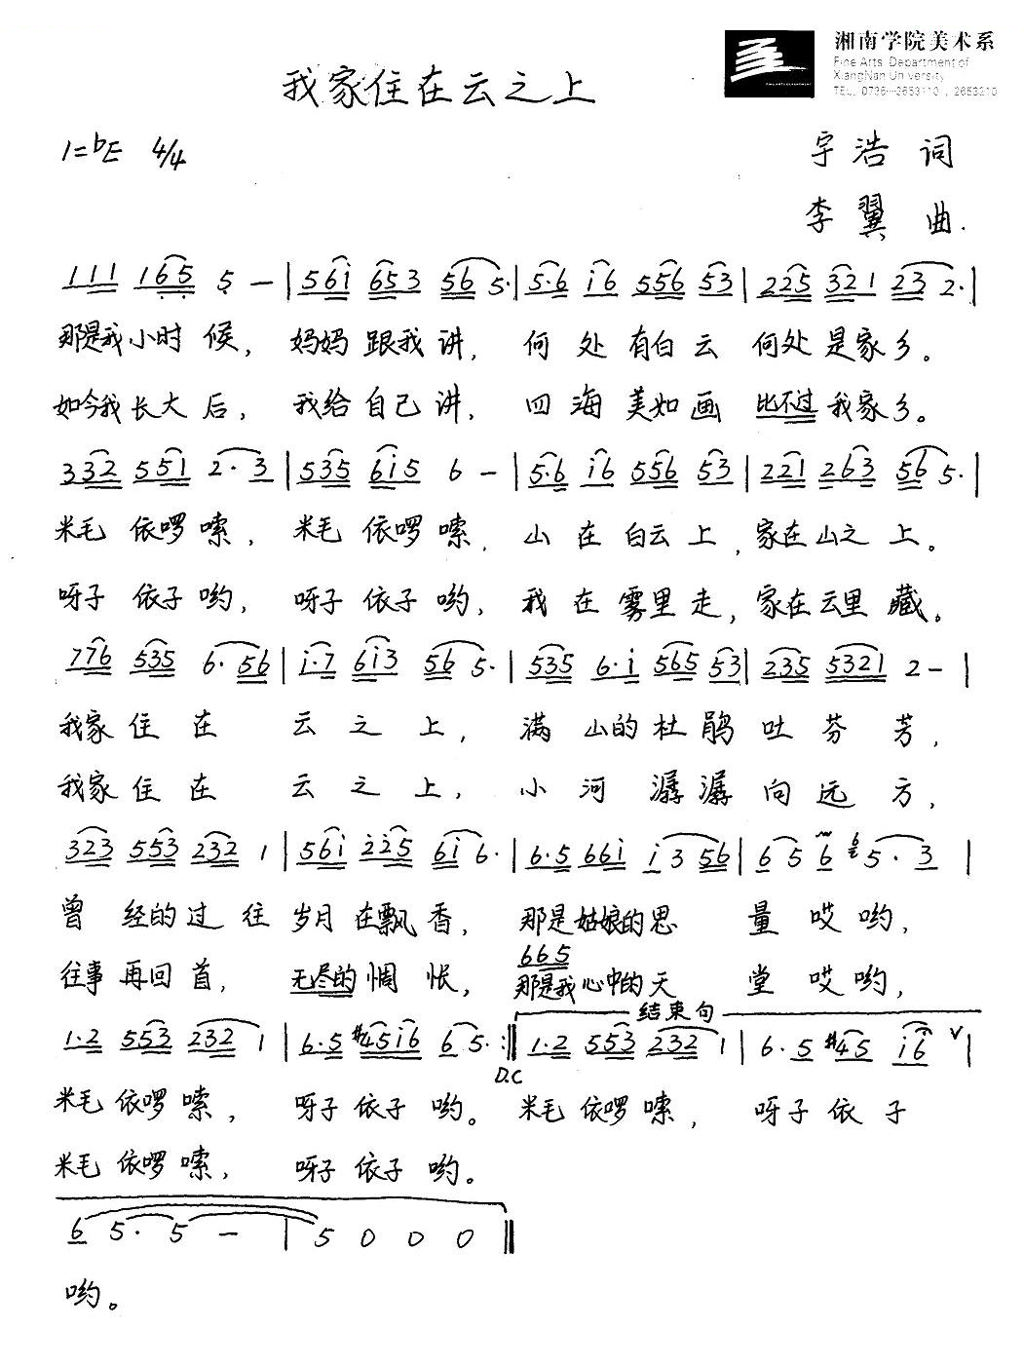 湘南学院美术系
Fine Arts Department of
XiangNan University
TEL. 0735-2653110, 2653210
我家住在云之上
1=bE 4/4
宇浩 词
李翼 曲.
111 165 5 — | 561 653 56 5· | 5·6 i6 556 53 | 225 321 23 2· |
那是我小时候， 妈妈跟我讲， 何处有白云 何处是家乡。
如今我长大后， 我给自己讲， 四海美如画 比不过我家乡。
332 551 2·3 | 535 6i5 6 — | 5·6 i6 556 53 | 221 263 56 5· |
米毛依啰嗦， 米毛依啰嗦， 山在白云上，家在山之上。
呀子依子哟， 呀子依子哟， 我在雾里走，家在云里藏。
776 535 6·56 | i·7 6i3 56 5· | 535 6·i 565 53 | 235 5321 2 — |
我家住在 云之上， 满山的杜鹃吐芬芳，
我家住在 云之上， 小河潺潺向远方，
323 553 232 1 | 56i 225 6i 6· | 6·5 66i i3 56 | 6 5 6 6 5·3 |
曾经的过往 岁月在飘香， 那是姑娘的思量哎哟，
665
往事再回首， 无尽的惆怅， 那是我心中的天堂哎哟，
结束句
1·2 553 232 1 | 6·5 #45i6 6 5· :‖ 1·2 553 232 1 | 6·5 #45 i6 V |
D.C
米毛依啰嗦， 呀子依子哟。 米毛依啰嗦， 呀子依子
米毛依啰嗦， 呀子依子哟。
6 5· 5 — | 5 0 0 0 ‖
哟。